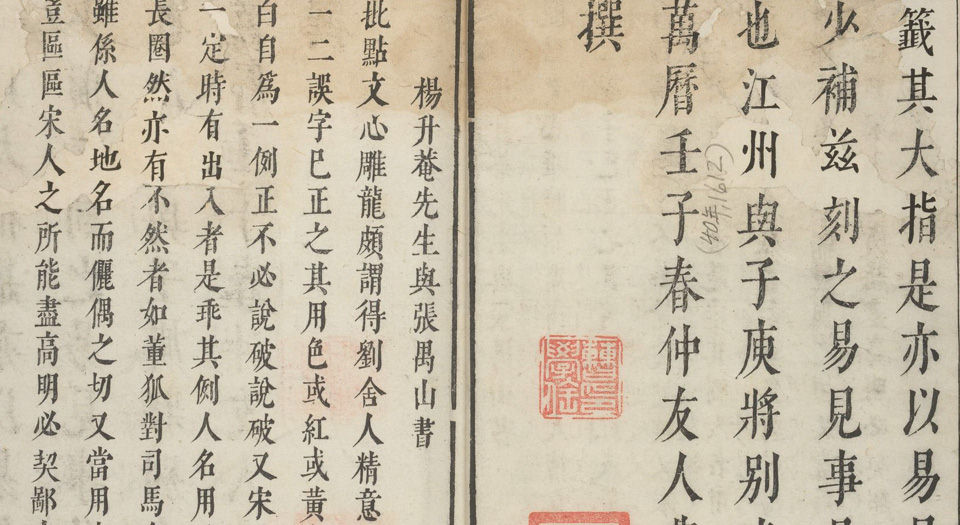 籤其大指是亦以易
少補茲刻之易見事
也江州與子庚將别
萬曆壬子春仲友人
(40年1612)
撰
楊升菴先生與張禺山書
批點文心雕龍頗謂得劉舍人精意
一二誤字已正之其用色或紅或黄
白自爲一例正不必說破說破又宋
一定時有出入者是乖其例人名用
長圈然亦有不然者如董狐對司馬
雖係人名地名而儷偶之切又當用
豈區區宋人之所能盡高明必契鄙